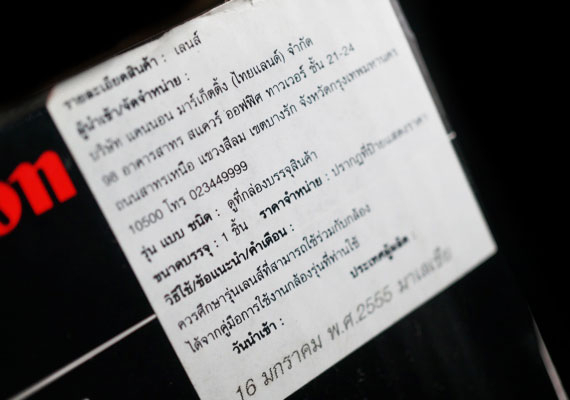 on
รายละเอียดสินค้า : เลนส์
ผู้นำเข้า/จัดจำหน่าย :
บริษัท แคนนอน มาร์เก็ตติ้ง (ไทยแลนด์) จำกัด
98 อาคารสาทร สแควร์ ออฟฟิศ ทาวเวอร์ ชั้น 21-24
ถนนสาทรเหนือ แขวงสีลม เขตบางรัก จังหวัดกรุงเทพมหานคร
10500 โทร 023449999
รุ่น แบบ ชนิด : ดูที่กล่องบรรจุสินค้า
ขนาดบรรจุ : 1 ชิ้น ราคาจำหน่าย : ปรากฏที่ป้ายแสดงราคา
วิธีใช้/ข้อแนะนำ/คำเตือน :
ควรศึกษารุ่นเลนส์ที่สามารถใช้ร่วมกับกล้อง
ได้จากคู่มือการใช้งานกล้องรุ่นที่ท่านใช้
วันนำเข้า : ประเทศผู้ผลิต :
16 มกราคม พ.ศ.2555 มาเลเซีย